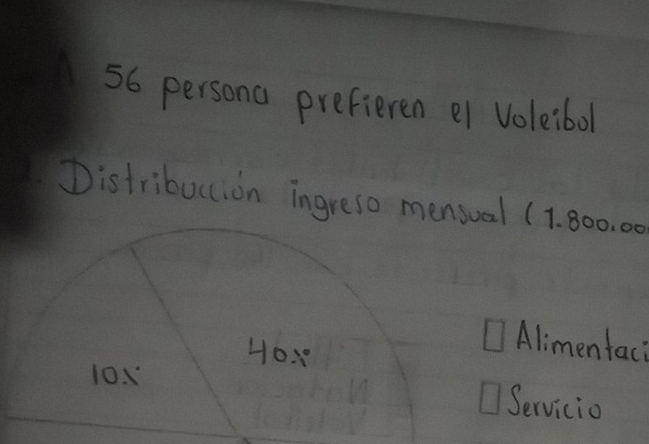 56 persona prefieren el Voleibol
Distribucción ingreso mensual (1.800.00
40%
10%
Alimentaci
Servicio